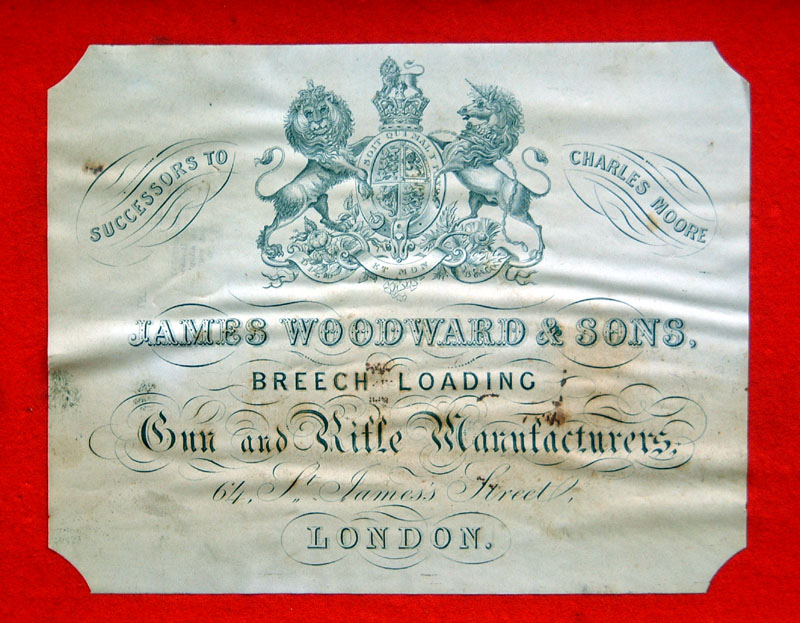 HONI SOIT QUI MAL Y PENSE
DIEU ET MON DROIT
SUCCESSORS TO
CHARLES MOORE
JAMES WOODWARD & SONS.
BREECH LOADING
Gun and Rifle Manufacturers,
64, St. James's Street,
LONDON.